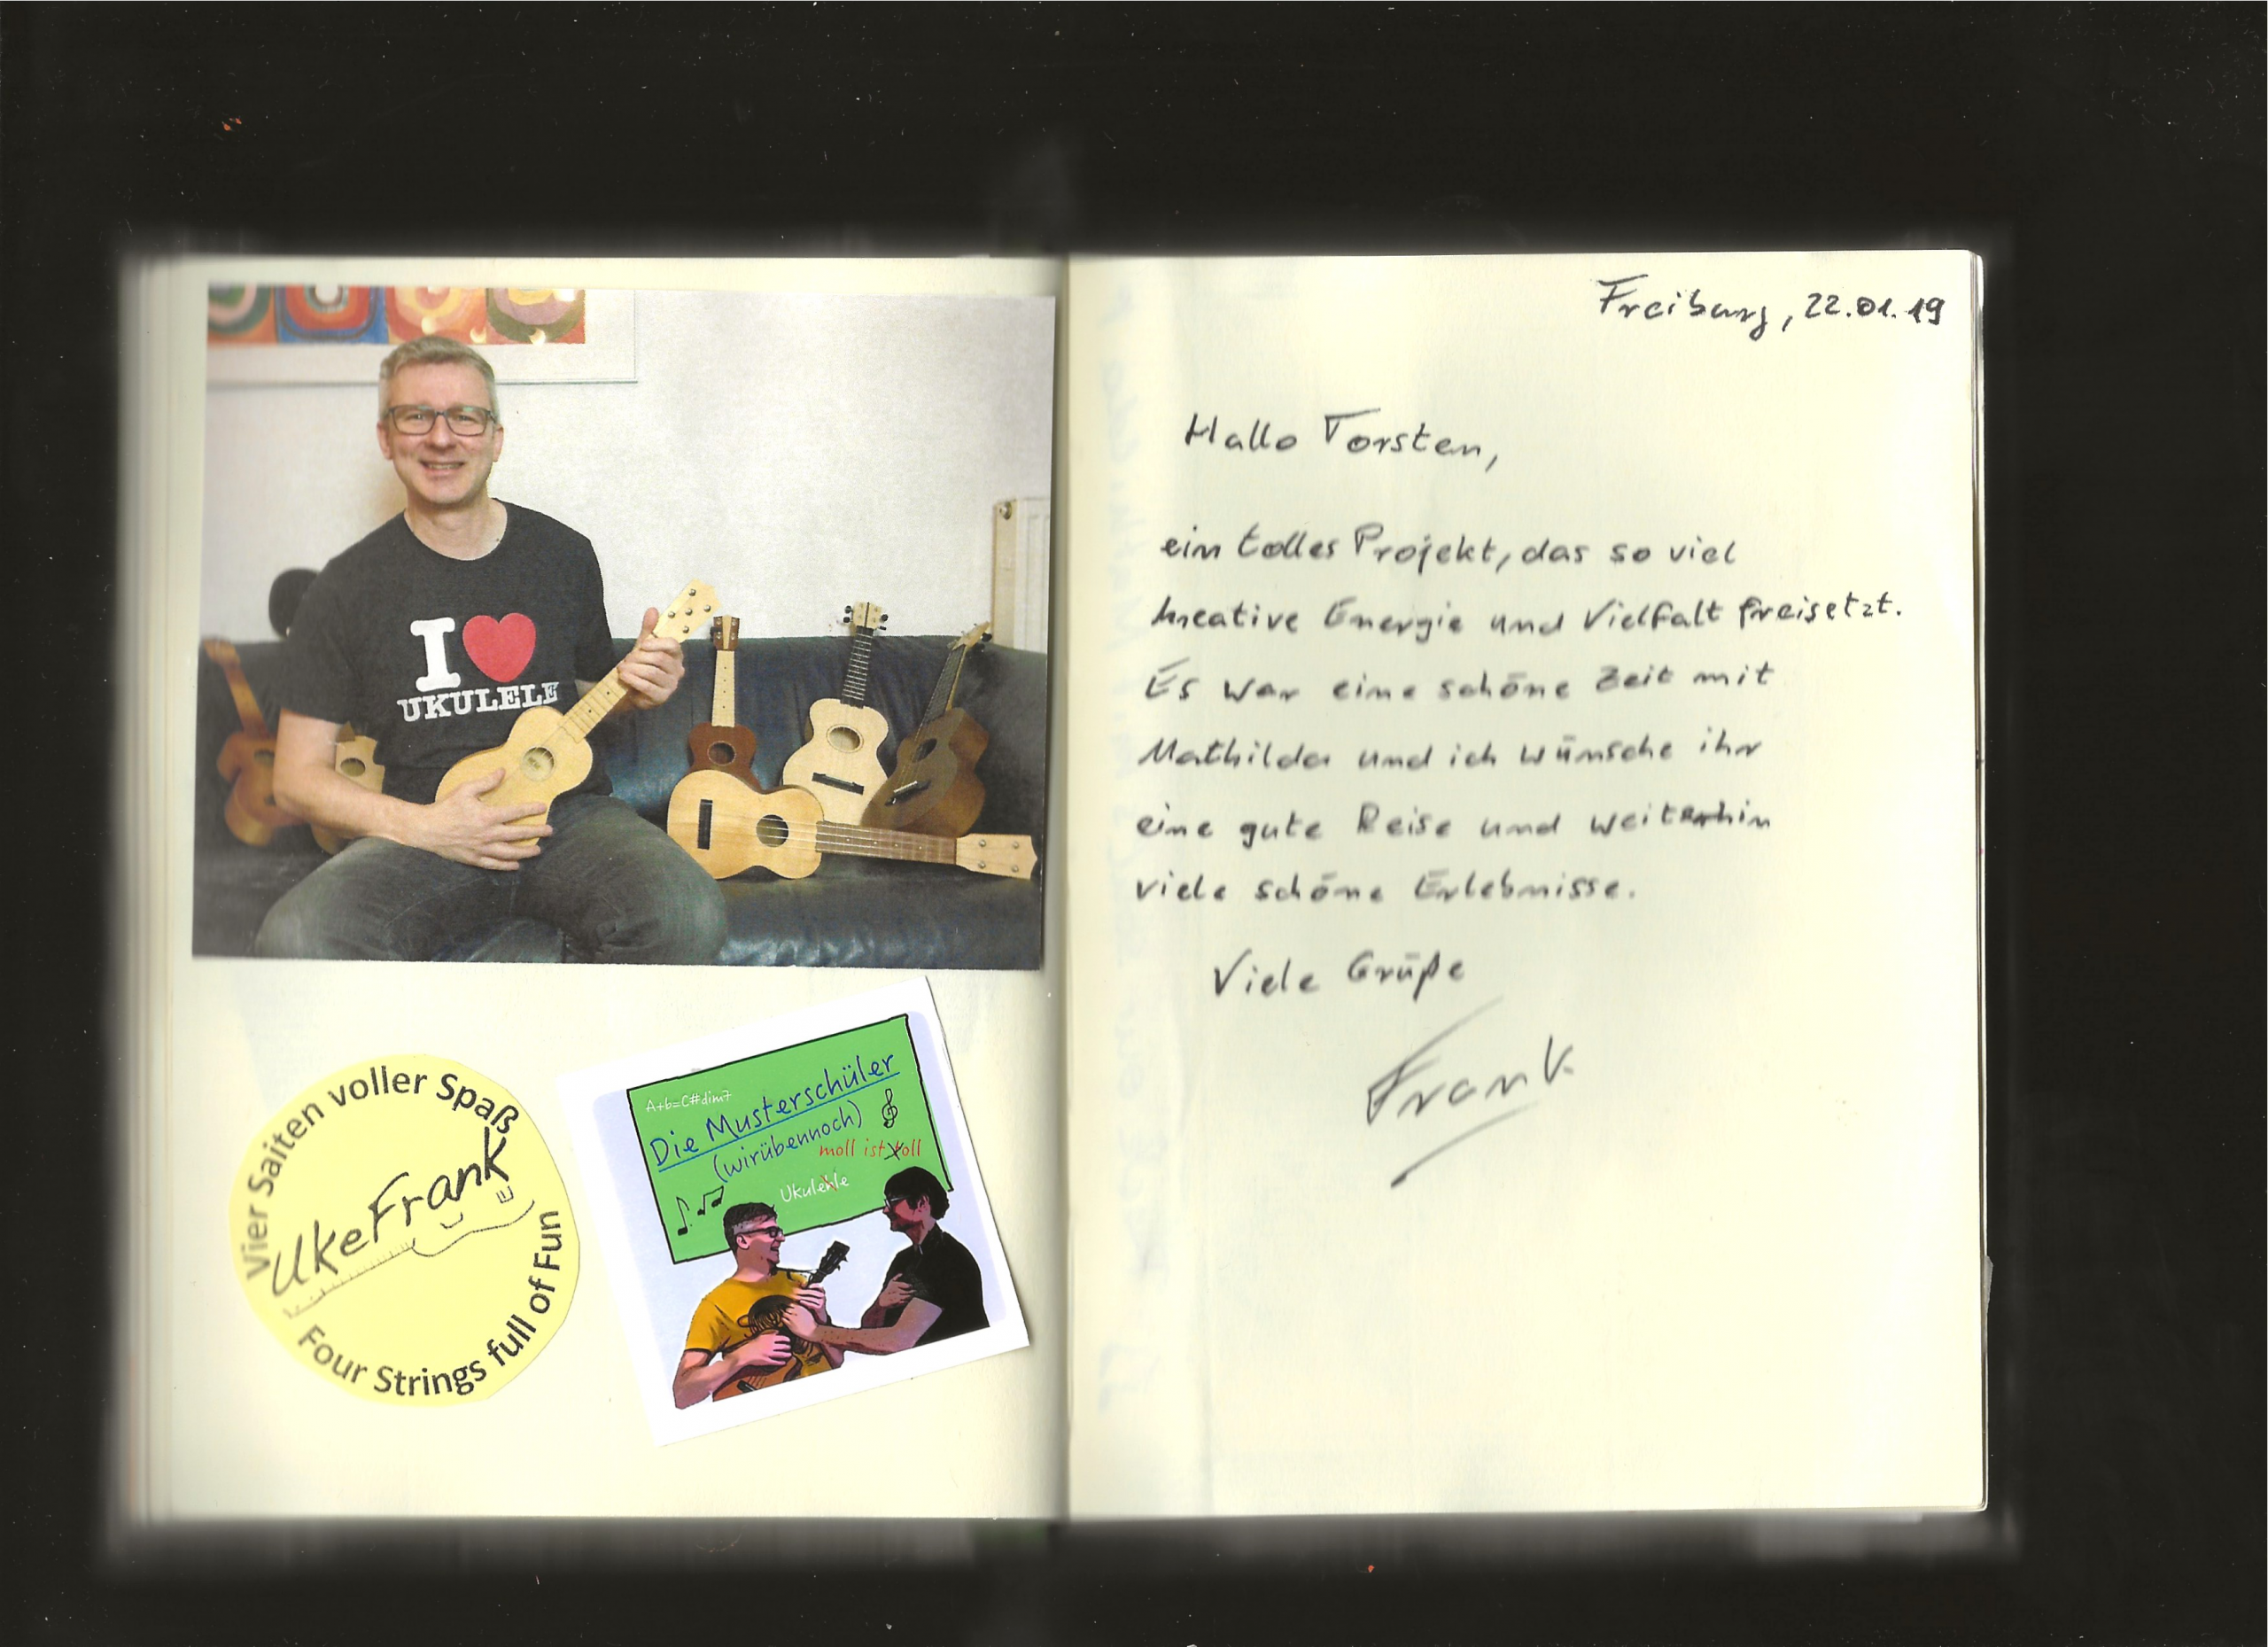 I ❤
UKULELE
Vier Saiten voller Spaß
UkeFrank
Four Strings full of Fun
A+b=C#dim7
Die Musterschüler
(wirübennoch)
moll ist toll
Ukulehle
Freiburg, 22.01.19
Hallo Torsten,
ein tolles Projekt, das so viel
kreative Energie und Vielfalt freisetzt.
Es war eine schöne Zeit mit
Mathilda und ich wünsche ihr
eine gute Reise und weiterhin
viele schöne Erlebnisse.
Viele Grüße
Frank